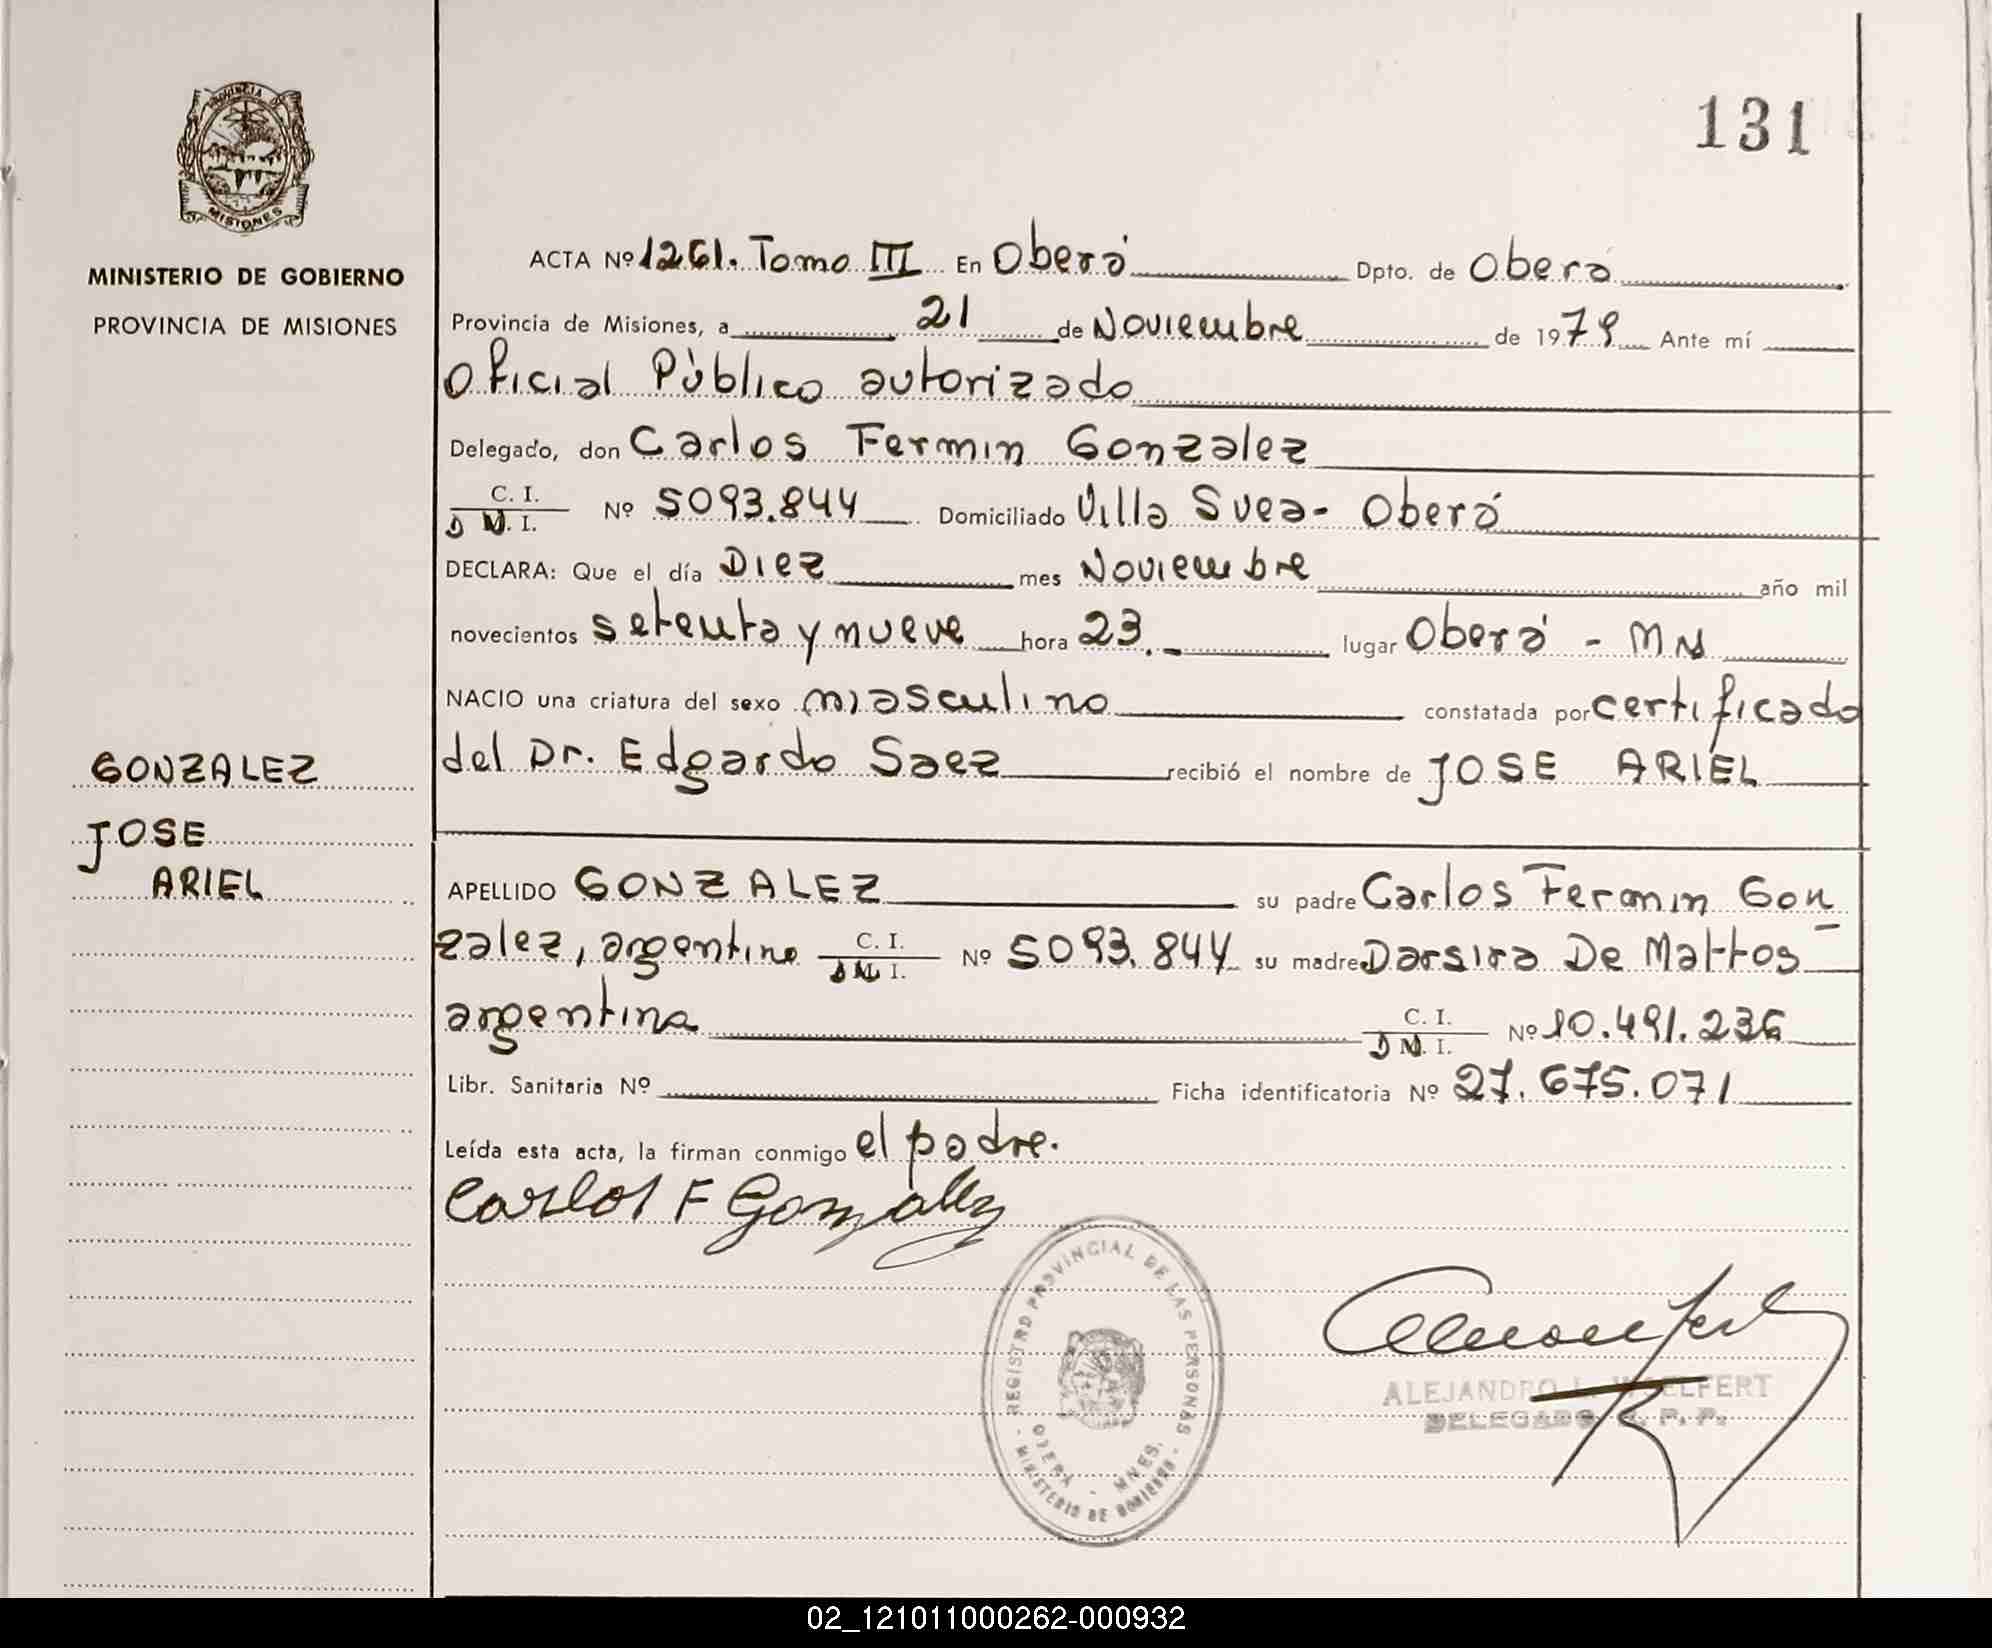 131
PROVINCIA DE
MISIONES
MINISTERIO DE GOBIERNO
PROVINCIA DE MISIONES
GONZALEZ
JOSE
ARIEL
ACTA Nº 1261. Tomo III En Oberá Dpto. de Oberá
Provincia de Misiones, a 21 de Noviembre de 1979 Ante mí
Oficial Público autorizado
Delegado, don Carlos Fermin Gonzalez
C. I.
D N. I. Nº 5093.844 Domiciliado Villa Svea - Oberá
DECLARA: Que el día Diez mes Noviembre año mil
novecientos setenta y nueve hora 23.- lugar Oberá - MN
NACIO una criatura del sexo masculino constatada por certificado
del Dr. Edgardo Saez recibió el nombre de JOSE ARIEL
APELLIDO GONZALEZ su padre Carlos Fermin Gon
zalez, argentino C. I. D N. I. Nº 5093.844 su madre Darsira De Mattos -
argentina C. I. D N. I. Nº 10.491.236
Libr. Sanitaria Nº Ficha identificatoria Nº 27.675.071
Leída esta acta, la firman conmigo el padre.
Carlos F Gonzalez
REGISTRO PROVINCIAL DE LAS PERSONAS - MINISTERIO DE GOBIERNO -
OBERA - MNES.
ALEJANDRO L. WOELFERT
DELEGADO R. P. P.
02_121011000262-000932